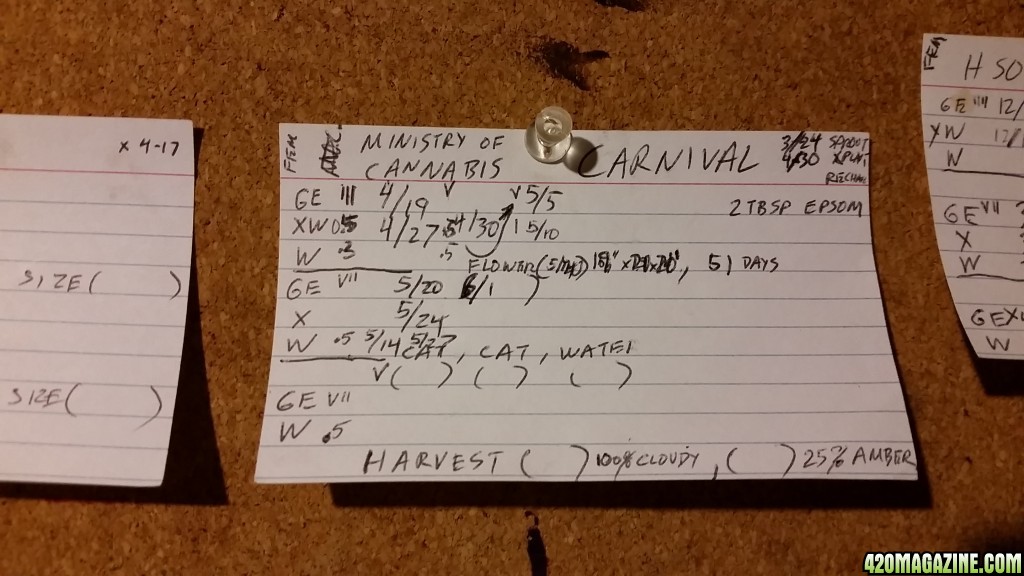 x 4-17
SIZE( )
SIZE( )
FEM MINISTRY OF CANNABIS CARNIVAL 3/24 SPROUT
4/30 XPLANT
GE III 4/19 V V 5/5 2 TBSP EPSOM
XW 4/27 4/30 1 5/10
W .3 .5 FLOWER( ) 51 DAYS
GE VII 5/20 6/1
X 5/24
W .5 5/14 5/27 CAT, CAT, WATE
V( ) ( ) ( )
GE VII
W .5
HARVEST ( ) 100% CLOUDY, ( ) 25% AMBER
FEM H SO
GE IIII 12/
XW
W
GE VII
X
W
GEX
W
420MAGAZINE.COM